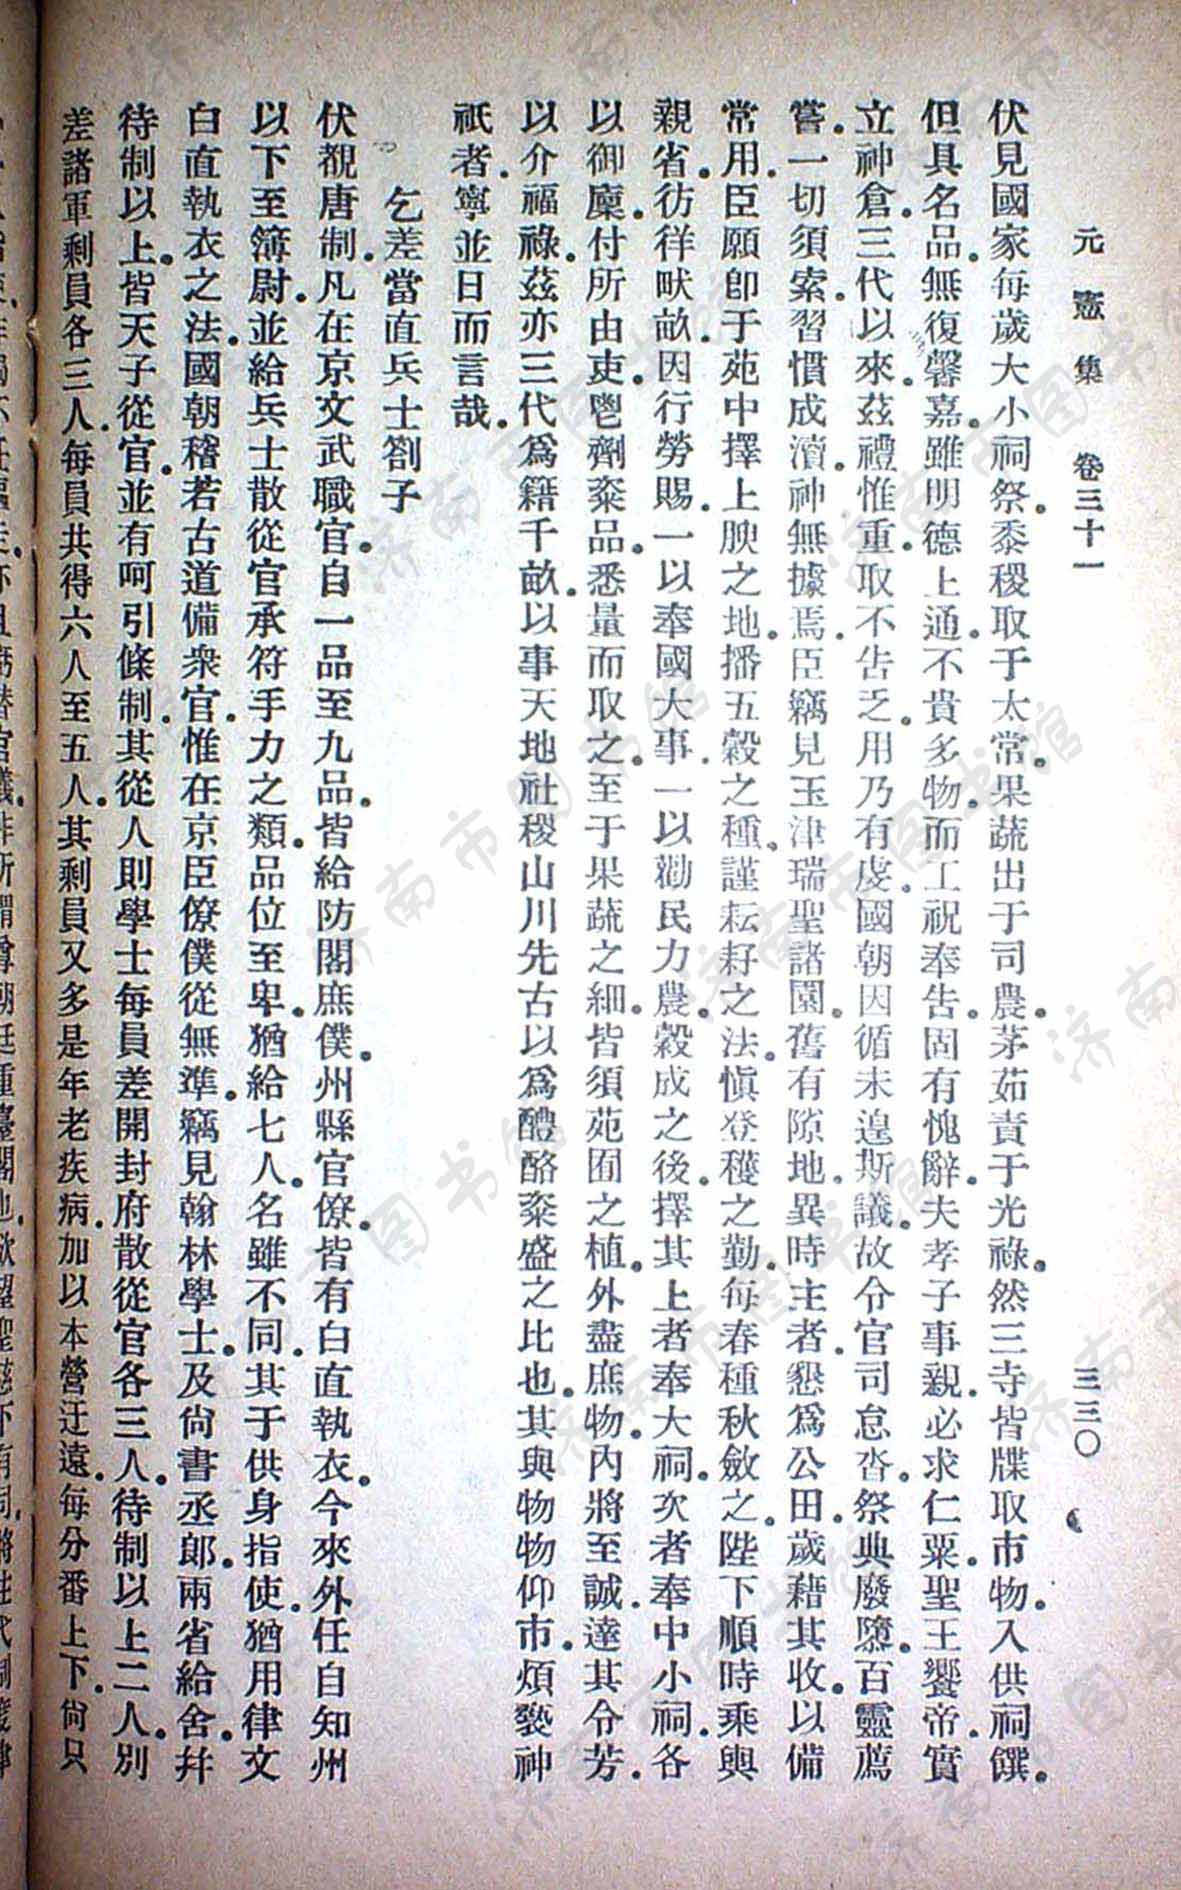 元憲集　卷三十一　三三〇
伏見國家每歲大小祠祭。黍稷取于太常。果蔬出于司農。茅茹責于光祿。然三寺皆牒取市物。入供祠饌。
但具名品。無復馨嘉。雖明德上通。不貴多物。而工祝奉告。固有愧辭。夫孝子事親。必求仁粟。聖王饗帝。實
立神倉。三代以來。茲禮惟重。取不告乏。用乃有虔。國朝因循未遑斯議。故令官司怠沓。祭典廢隳。百靈薦
嘗。一切須索。習慣成瀆。神無據焉。臣竊見玉津瑞聖諸園。舊有隙地。異時主者。懇爲公田。歲藉其收。以備
常用。臣願卽于苑中擇上腴之地。播五穀之種。謹耘耔之法。愼登穫之勤。每春種秋斂之。陛下順時乘輿
親省。彷徉畎畝。因行勞賜。一以奉國大事。一以勸民力農。穀成之後。擇其上者奉大祠。次者奉中小祠。各
以御廩。付所由吏。鬯劑粢品。悉量而取之。至于果蔬之細。皆須苑囿之植。外盡庶物。內將至誠。達其令芳。
以介福祿。茲亦三代爲籍千畝。以事天地社稷山川先古以爲醴酪粢盛之比也。其與物物仰市。煩褻神
祇者。寧並日而言哉。
乞差當直兵士劄子
伏覩唐制。凡在京文武職官。自一品至九品。皆給防閤庶僕。州縣官僚。皆有白直執衣。今來外任自知州
以下至簿尉。並給兵士散從官承符手力之類。品位至卑。猶給七人。名雖不同。其于供身指使。猶用律文
白直執衣之法。國朝稽若古道備衆官。惟在京臣僚僕從無準。竊見翰林學士。及尙書丞郞。兩省給舍。幷
待制以上。皆天子從官。並有呵引條制。其從人則學士每員差開封府散從官各三人。待制以上二人。別
差諸軍剩員各三人。每員共得六人至五人。其剩員又多是年老疾病。加以本營迂遠。每分番上下。尙只